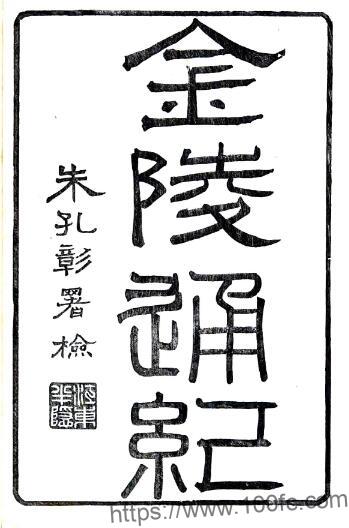 金陵通紀
朱孔彰署檢
https://www.100fc.com